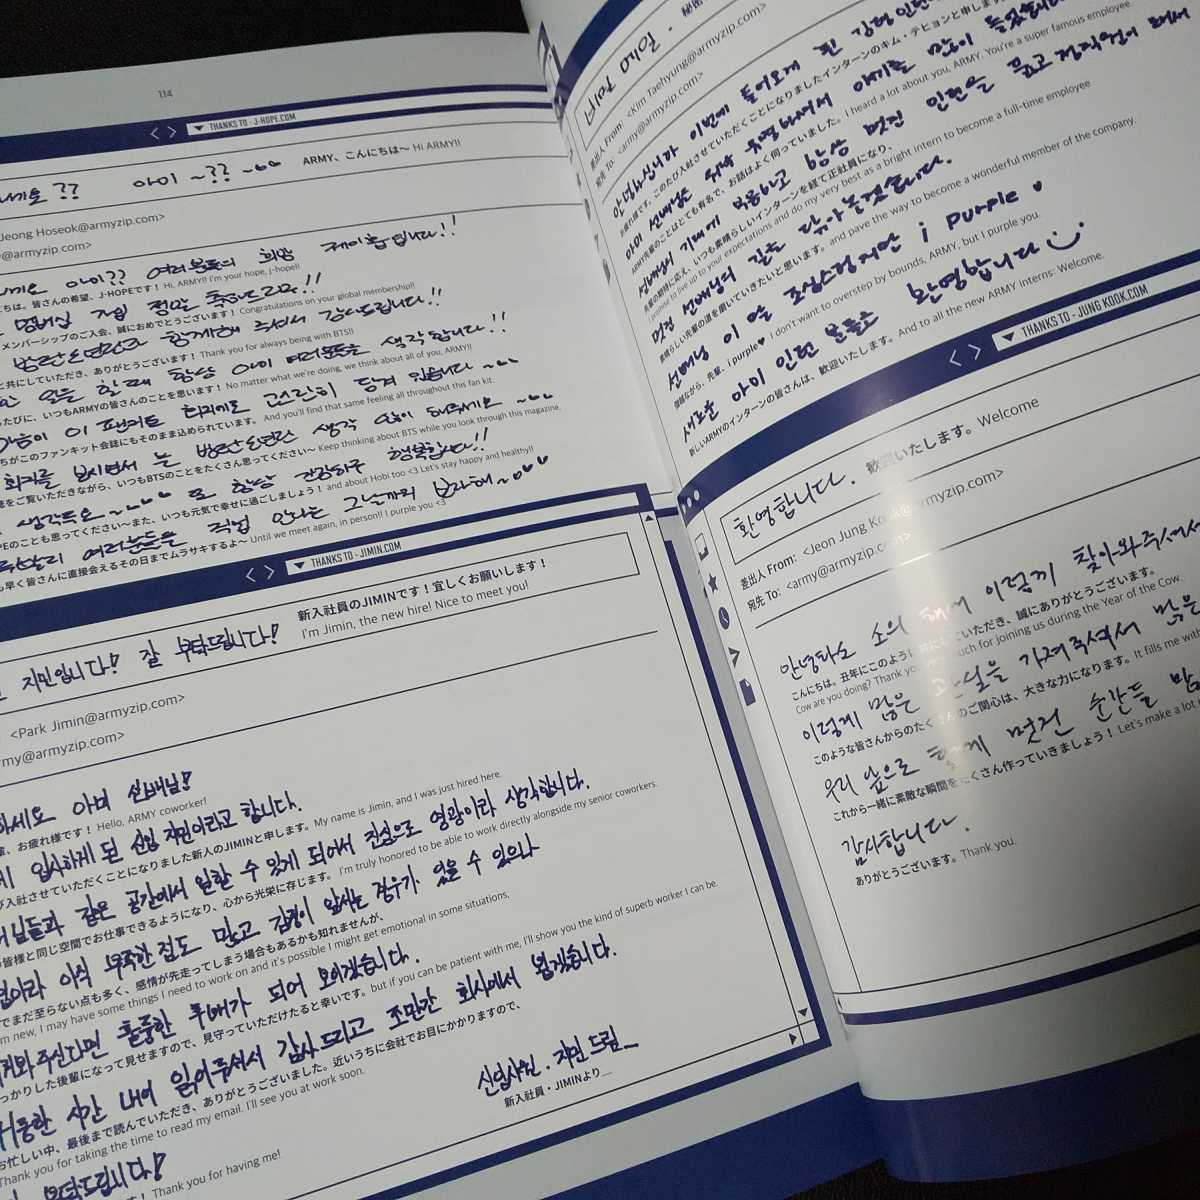 114
THANKS TO - J-HOPE.COM
아미 ~?? ~ ARMY、こんにちは~ Hi ARMY!!
Jeong Hoseok@armyzip.com>
@armyzip.com>
아미?? 여러분들의 희망 제이홉입니다!!
ちは。皆さんの希望、J-HOPEです! Hi, ARMY!! I'm your hope, j-hope!!
멤버십 가입 정말 축하드려요!!
メンバーシップのご入会、誠におめでとうございます! Congratulations on your global membership!!
방탄소년단과 함께해 주셔서 감사드립니다!!
と共にしていただき、ありがとうございます! Thank you for always being with BTS!!
일을 할 때 항상 아미 여러분들을 생각합니다!!
たびに、いつもARMYの皆さんのことを思います! No matter what we're doing, we think about all of you, ARMY!!
마음이 이 팬키트 회지에도 고스란히 담겨 있습니다 ~
ちがこのファンキット会誌にもそのまま込められています。 And you'll find that same feeling all throughout this fan kit.
회지를 보시면서 늘 방탄소년단 생각 많이 해주세요 ~
をご覧いただきながら、いつもBTSのことをたくさん思ってください~ Keep thinking about BTS while you look through this magazine,
생각두요 ~ 또 항상 건강하구 행복합시다!!
PEのことも思ってください~また、いつも元気で幸せに過ごしましょう! and about Hobi too <3 Let's stay happy and healthy!!
여러분들을 직접 만나는 그날까지 보라해~
も早く皆さんに直接会えるその日までムラサキするよ~ Until we meet again, in person!! I purple you <3
THANKS TO - JIMIN.COM
지민입니다! 잘 부탁드립니다! 新入社員のJIMINです!宜しくお願いします!
I'm Jimin, the new hire! Nice to meet you!
<Park Jimin@armyzip.com>
my@armyzip.com>
하세요 아미 선배님!
、お疲れ様です! Hello, ARMY coworker!
입사하게 된 신입 지민이라고 합니다.
び入社させていただくことになりました新人のJIMINと申します。 My name is Jimin, and I was just hired here.
님들과 같은 공간에서 일할 수 있게 되어서 진심으로 영광이라 생각합니다.
皆様と同じ空間でお仕事できるようになり、心から光栄に存じます。 I'm truly honored to be able to work directly alongside my senior coworkers.
이라 아직 부족한 점도 많고 감정이 앞서는 경우가 있을 수 있으나
でまだ至らない点も多く、感情が先走ってしまう場合もあるかも知れませんが、
m new, I may have some things I need to work on and it's possible I might get emotional in some situations,
주신다면 훌륭한 후배가 되어 보이겠습니다.
っかりした後輩になって見せますので、見守っていただけたると幸いです。 but if you can be patient with me, I'll show you the kind of superb worker I can be.
시간 내어 읽어주셔서 감사드리고 조만간 회사에서 뵙겠습니다.
お忙しい中、最後まで読んでいただき、ありがとうございました。近いうちに会社でお目にかかりますので、
Thank you for taking the time to read my email. I'll see you at work soon.
부탁드립니다!
Thank you for having me!
신입사원. 지민 드림_
新入社員・JIMINより__
비밀 메일
差出人 From: <Kim Taehyung@armyzip.com>
宛先 To: <army@armyzip.com>
안녕하십니까 이번에 들어오게 된 김태형 인턴
お疲れ様です。このたび入社させていただくことになりましたインターンのキム・テヒョンと申します
아미 선배님은 워낙 유명하셔서 얘기를 많이 들었습니다
ARMY先輩のことはとても有名で、お話はよく伺っていました。 I heard a lot about you, ARMY. You're a super famous employee.
선배님 기대에 부응하고 항상 멋진 인턴을 끝고 정직원이 돼서
先輩の期待に応え、いつも素晴らしいインターンを経て正社員になり、
I promise to live up to your expectations and do my very best as a bright intern to become a full-time employee
멋진 선배님의 길을 닦아놓겠습니다.
素晴らしい先輩の道を磨いていきたいと思います。 and pave the way to become a wonderful member of the company.
선배님 이 말 조심스럽지만 i purple ♥
僭越ながら、先輩、i purple♥ i don't want to overstep by bounds, ARMY, but I purple you.
새로운 아미 인턴 분들도 환영합니다
新しいARMYのインターンの皆さんは、歓迎いたします。 And to all the new ARMY interns: Welcome.
THANKS TO - JUNG KOOK.COM
환영합니다. 歓迎いたします。Welcome
差出人 From: <Jeon Jung Kook@armyzip.com>
宛先 To: <army@armyzip.com>
안녕하소 소의 해에 이렇게 찾아와주셔서
こんにちは。丑年にこのように共にしていただき、誠にありがとうございます。
Cow are you doing? Thank you so much for joining us during the Year of the Cow.
이렇게 많은 관심을 가져주셔서 많은
このような皆さんからのたくさんのご関心は、大きな力になります。 It fills me with
우리 앞으로 함께 멋진 순간들 많
これから一緒に素敵な瞬間をたくさん作っていきましょう! Let's make a lot
감사합니다.
ありがとうございます。Thank you.